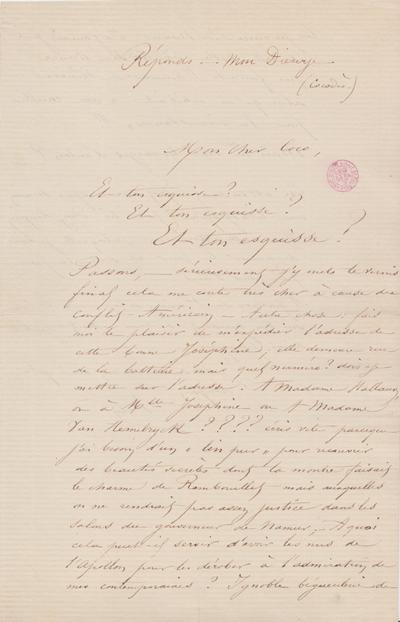 Réponds — Mon Dierix
Mon cher Coco,
Et ton esquisse?
Et ton esquisse?
Et ton esquisse?
Passons, — sérieusement j'y mets le vernis
final, cela me coute très cher à cause du
conflit — Américain — Autre chose : fais
moi le plaisir de m'expédier l'adresse de
cette bonne Joséphine; elle demeure rue
de la mais quel numéro? dois-je
mettre sur l'adresse : A Madame
ou à Melle Joséphine ou A Madame
Van Hemelryck ???? écris vite parceque
j'ai besoin d'un « lien pur » pour recouvrir
des beautés secrètes dont la montre faisait
le charme de Rambouillet mais auxquelles
on ne rendrait pas assez justice dans les
salons du gouverneur de Namur, — A quoi
cela peut-il servir d'avoir les nus de
l'Apollon pour les dérober à l'admiration de
mes contemporains? Ignoble bégueulerie de